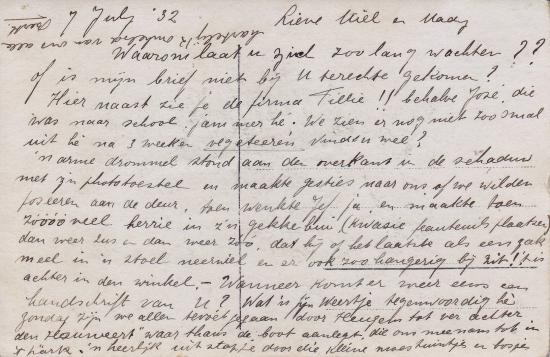 7 July '32 Lieve Miel en Maay
hartelijke omhelzen van ons alle
Waarom laat u zich zoo lang wachten??
Of is mijn brief niet bij U terechte gekomen?
Hier naast zie je de firma Tillie!! behalve José, die
was naar school, jammer hé. We zien er nog niet zoo smal
uit hé na 3 weken vegeteeren vindt u wel?
'n arme drommel stond aan den overkant in de schaduw
met z'n phototoestel en maakte gesties naar ons, of we wilden
poseeren aan de deur, toen wenkte Jef ja, en maakte toen
zóóóó veel herrie in z'n gekke bui (kwasie fauteuils plaatsen)
dan weer zus en dan weer zoo, dat hij op het laatste als een zak
meel in 'n stoel neerviel en er ook zoo hangerig bij zit! 't is
achter in den winkel, — Wanneer komt er weer eens een
handschrift van U? Wat is jen Weertje tegenwoordig hé
zondag zijn we allen tevoet gegaan door Heugem tot ver achter
den "Zeauweert" waar thans de boot aanlegt, die ons meenam tot in
't park. 'n heerlijk uitstapje door die kleine moestuintjes en bosjes